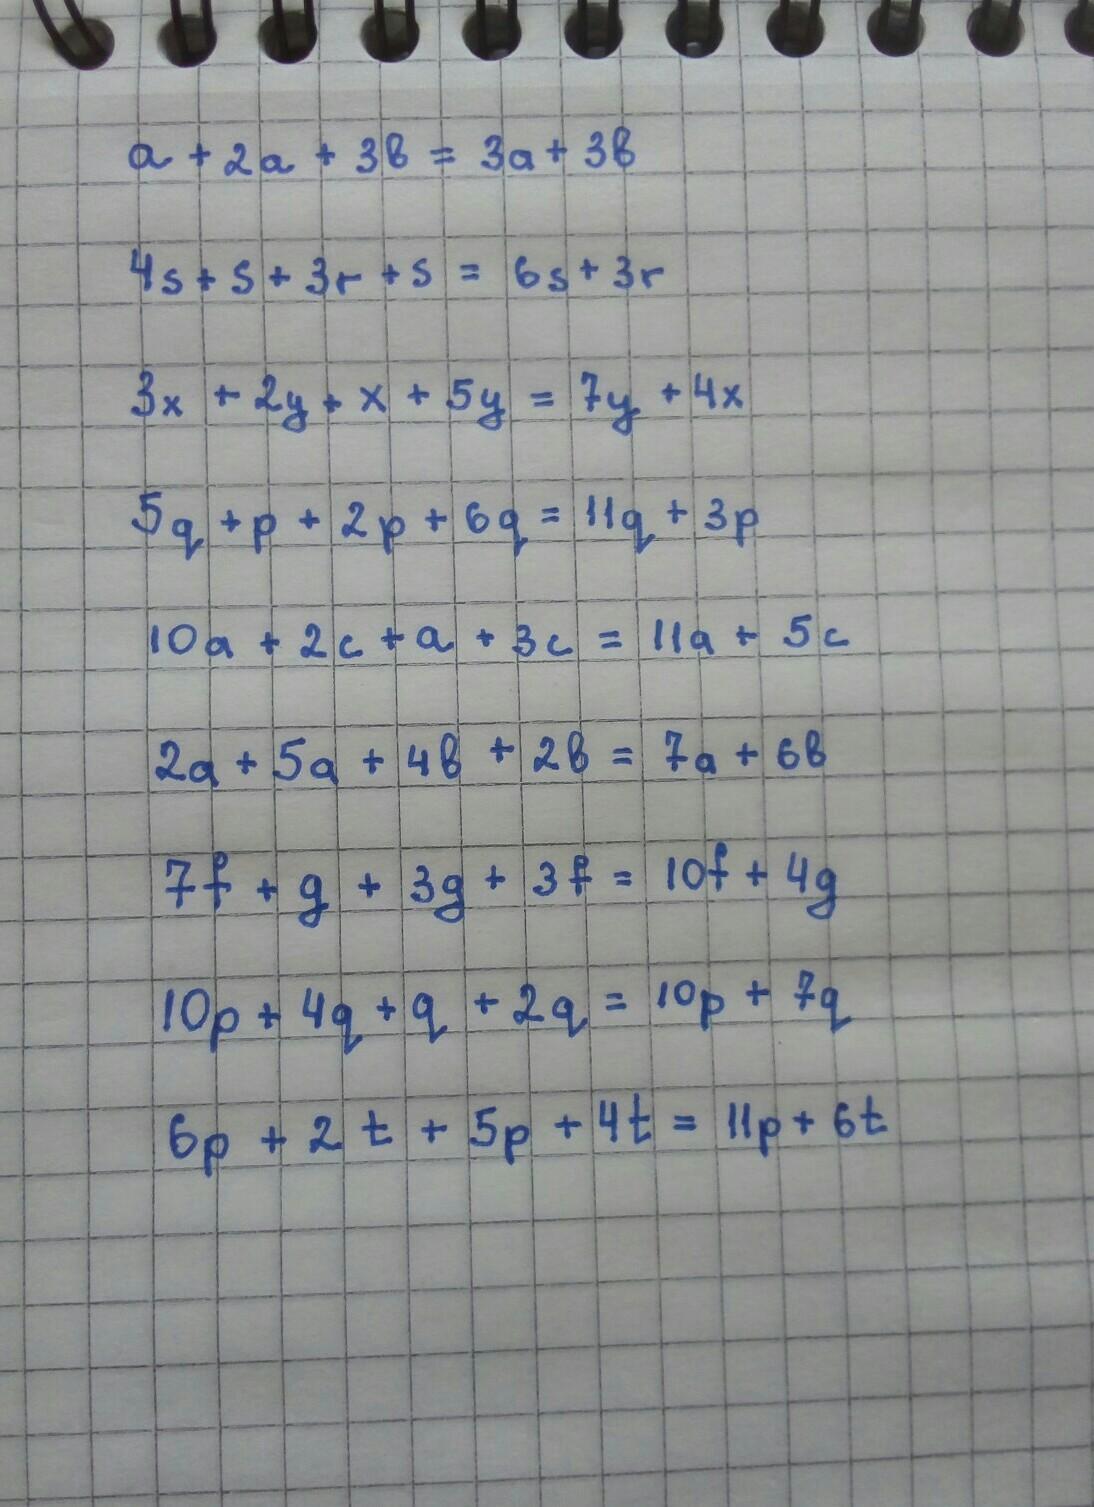 a + 2a + 3b = 3a + 3b
4s + s + 3r + s = 6s + 3r
3x + 2y + x + 5y = 7y + 4x
5q + p + 2p + 6q = 11q + 3p
10a + 2c + a + 3c = 11a + 5c
2a + 5a + 4b + 2b = 7a + 6b
7f + g + 3g + 3f = 10f + 4g
10p + 4q + q + 2q = 10p + 7q
6p + 2t + 5p + 4t = 11p + 6t